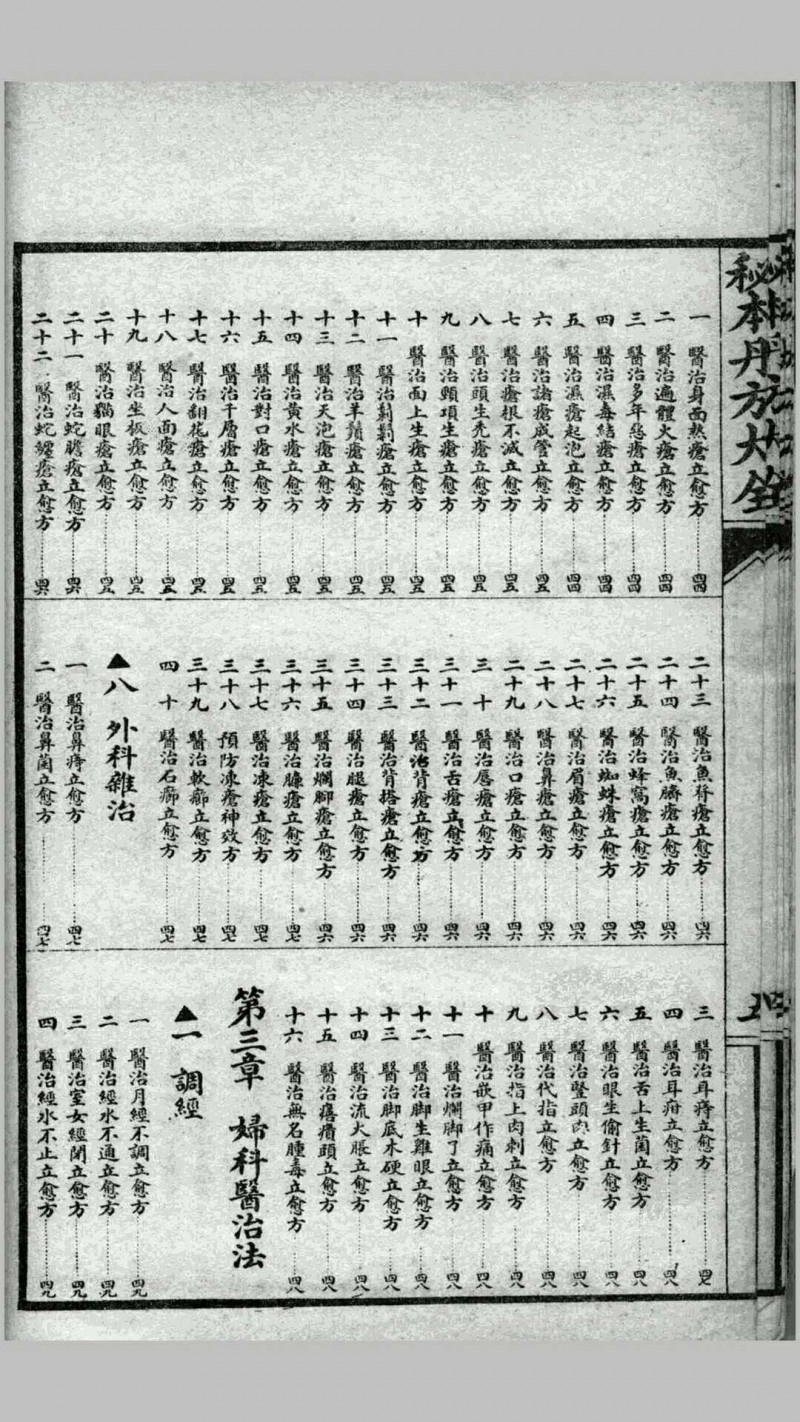 秘本丹方大全
一 醫治身面熱瘡立愈方 四四
二 醫治遍體火瘡立愈方 四四
三 醫治多年惡瘡立愈方 四四
四 醫治濕毒結瘡立愈方 四四
五 醫治濕瘡起泡立愈方 四四
六 醫治諸瘡成管立愈方 四五
七 醫治瘡根不滅立愈方 四五
八 醫治頭生秃瘡立愈方 四五
九 醫治頸項生瘡立愈方 四五
十 醫治面上生瘡立愈方 四五
十一 醫治瘡立愈方 四五
十二 醫治羊鬚瘡立愈方 四五
十三 醫治天泡瘡立愈方 四五
十四 醫治黃水瘡立愈方 四五
十五 醫治對口瘡立愈方 四五
十六 醫治千層瘡立愈方 四五
十七 醫治翻花瘡立愈方 四五
十八 醫治人面瘡立愈方 四五
十九 醫治坐板瘡立愈方 四五
二十 醫治貓眼瘡立愈方 四五
二十一 醫治蛇膽瘡立愈方 四六
二十二 醫治蛇纏瘡立愈方 四六
二十三 醫治魚脊瘡立愈方 四六
二十四 醫治魚臍瘡立愈方 四六
二十五 醫治蜂窩瘡立愈方 四六
二十六 醫治蜘蛛瘡立愈方 四六
二十七 醫治眉瘡立愈方 四六
二十八 醫治鼻瘡立愈方 四六
二十九 醫治口瘡立愈方 四六
三十 醫治唇瘡立愈方 四六
三十一 醫治舌瘡立愈方 四六
三十二 醫治背瘡立愈方 四六
三十三 醫治背搭瘡立愈方 四六
三十四 醫治腿瘡立愈方 四六
三十五 醫治爛腳瘡立愈方 四六
三十六 醫治臁瘡立愈方 四七
三十七 醫治凍瘡立愈方 四七
三十八 預防凍瘡神效方 四七
三十九 醫治軟癤立愈方 四七
四十 醫治石癤立愈方 四七
▲八 外科雜治
一 醫治鼻痔立愈方 四七
二 醫治鼻菌立愈方 四七
三 醫治耳痔立愈方 四七
四 醫治耳疳立愈方 四八
五 醫治舌上生菌立愈方 四八
六 醫治眼生偷針立愈方 四八
七 醫治豎頭肉立愈方 四八
八 醫治代指立愈方 四八
九 醫治指上肉刺立愈方 四八
十 醫治嵌甲作痛立愈方 四八
十一 醫治爛脚丫立愈方 四八
十二 醫治脚生雞眼立愈方 四八
十三 醫治脚底木硬立愈方 四八
十四 醫治流火脹立愈方 四八
十五 醫治頭立愈方 四八
十六 醫治無名腫毒立愈方 四八
第三章 婦科醫治法
▲一 調經
一 醫治月經不調立愈方 四九
二 醫治經水不通立愈方 四九
三 醫治室女經閉立愈方 四九
四 醫治經水不止立愈方 四九